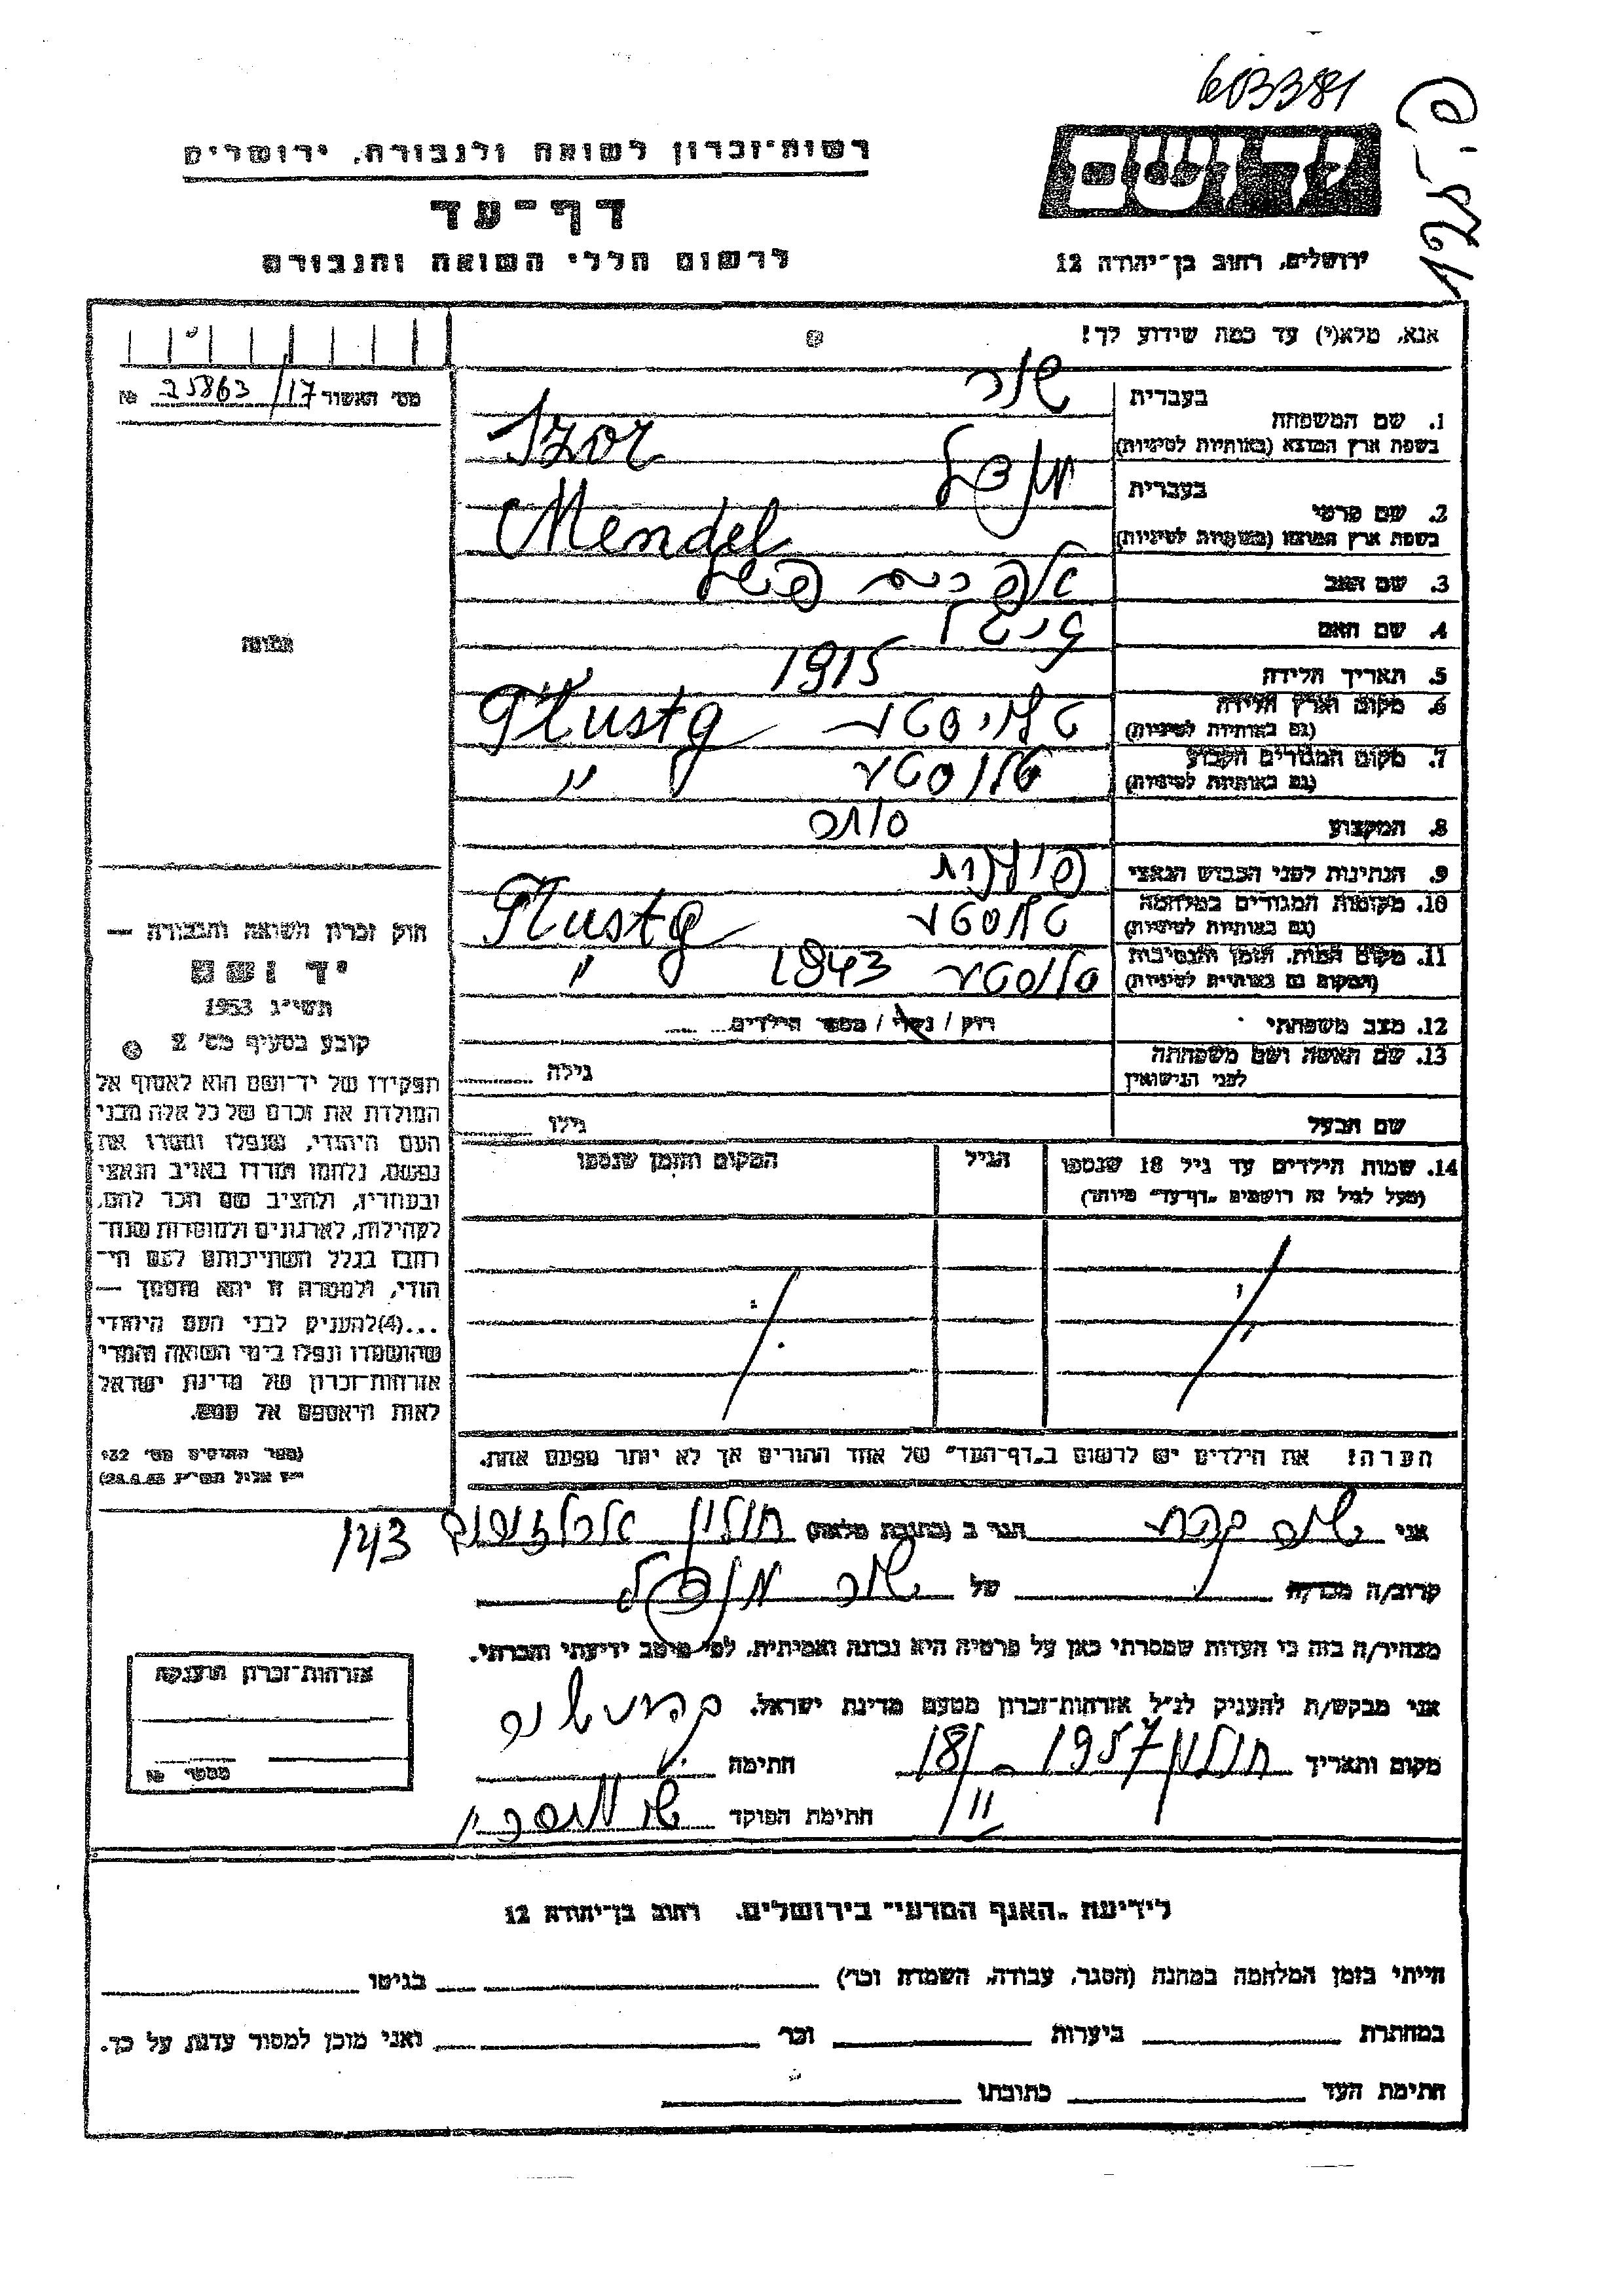 603381
125.פ
יד ושם
רשות-זכרון לשואה ולגבורה, ירושלים
דף-עד
לרשום חללי השואה והגבורה
ירושלים, רחוב בן-יהודה 12
אנא, מלא(י) עד כמה שידוע לך!
מס' האשור 25863/17 №
1. שם המשפחה בעברית
בשפת ארץ המוצא (באותיות לטיניות)
2. שם פרטי בעברית מנדל
בשפת ארץ המוצא (באותיות לטיניות) Mendel
3. שם האב
4. שם האם
5. תאריך הלידה 1915
6. מקום וארץ הלידה
(גם באותיות לטיניות)
7. מקום המגורים הקבוע "
(גם באותיות לטיניות)
8. המקצוע סוחר
9. הנתינות לפני הכבוש הנאצי פולנית
10. מקומות המגורים במלחמה
(גם באותיות לטיניות)
11. מקום המות, הזמן והנסיבות 1943 "
(המקום גם באותיות לטיניות)
12. מצב משפחתי רוק / נשוי / מספר הילדים
13. שם האשה ושם משפחתה
לפני הנישואין גילה
שם הבעל גילו
14. שמות הילדים עד גיל 18 שנספו הגיל המקום והזמן שנספו
(מעל לגיל זה רושמים "דף-עד" מיוחד)
הערה! את הילדים יש לרשום ב"דף-העד" של אחד ההורים אך לא יותר מפעם אחת.
תמונה
חוק זכרון השואה והגבורה —
יד ושם
תשי"ג 1953
קובע בסעיף מס' 2
תפקידו של יד-ושם הוא לאסוף אל
המולדת את זכרם של כל אלה מבני
העם היהודי, שנפלו ומסרו את
נפשם, נלחמו ומרדו באויב הנאצי
ובעוזריו, ולהציב שם וזכר להם,
לקהילות, לארגונים ולמוסדות שנח-
רבו בגלל השתייכותם לעם הי-
הודי, ולמטרה זו יהא מוסמך —
...(4) להעניק לבני העם היהודי
שהושמדו ונפלו בימי השואה והמרי
אזרחות-זכרון של מדינת ישראל
לאות היאספם אל עמם.
אני הגר ב (כתובת מלאה) חולון 143
קרוב/ה מכר/ה של מנדל
מצהיר/ה בזה כי העדות שמסרתי כאן על פרטיה היא נכונה ואמיתית, לפי מיטב ידיעתי והכרתי.
אני מבקש/ת להעניק לנ"ל אזרחות-זכרון מטעם מדינת ישראל.
מקום ותאריך חולון 1957 - 18/11 חתימה
חתימת הפוקד
אזרחות-זכרון הוענקה
מספר №
לידיעת "האגף המדעי" בירושלים, רחוב בן-יהודה 12
הייתי בזמן המלחמה במחנה (הסגר, עבודה, השמדה וכר') בגיטו
במחתרת ביערות וכר' ואני מוכן למסור עדות על כך.
חתימת העד כתובתו